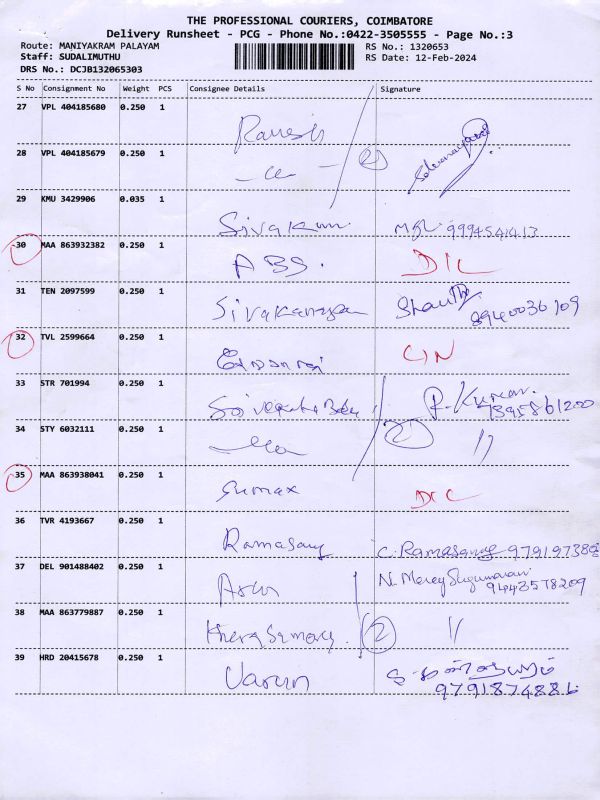 THE PROFESSIONAL COURIERS, COIMBATORE
Delivery Runsheet - PCG - Phone No.:0422-3505555 - Page No.:3
Route: MANIYAKRAM PALAYAM RS No.: 1320653
Staff: SUDALIMUTHU RS Date: 12-Feb-2024
DRS No.: DCJB132065303
S No Consignment No Weight PCS Consignee Details Signature
27 VPL 404185680 0.250 1
Ramesh
28 VPL 404185679 0.250 1
2
29 KMU 3429906 0.035 1
Sivakum 9994541413
30 MAA 863932382 0.250 1
ABS. DIL
31 TEN 2097599 0.250 1
8940036109
32 TVL 2599664 0.250 1
33 STR 701994 0.250 1
P. Kumar.
7395861200
34 STY 6032111 0.250 1
2 11
35 MAA 863938041 0.250 1
Sumax
36 TVR 4193667 0.250 1
Ramasamy C. Ramasamy
37 DEL 901488402 0.250 1
Arun 9443578209
38 MAA 863779887 0.250 1
2 11
39 HRD 20415678 0.250 1
Varun
9791874886